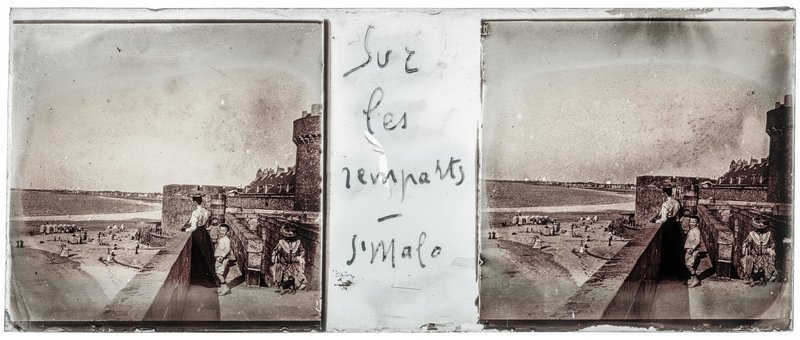 Sur
les
remparts
-
St Malo